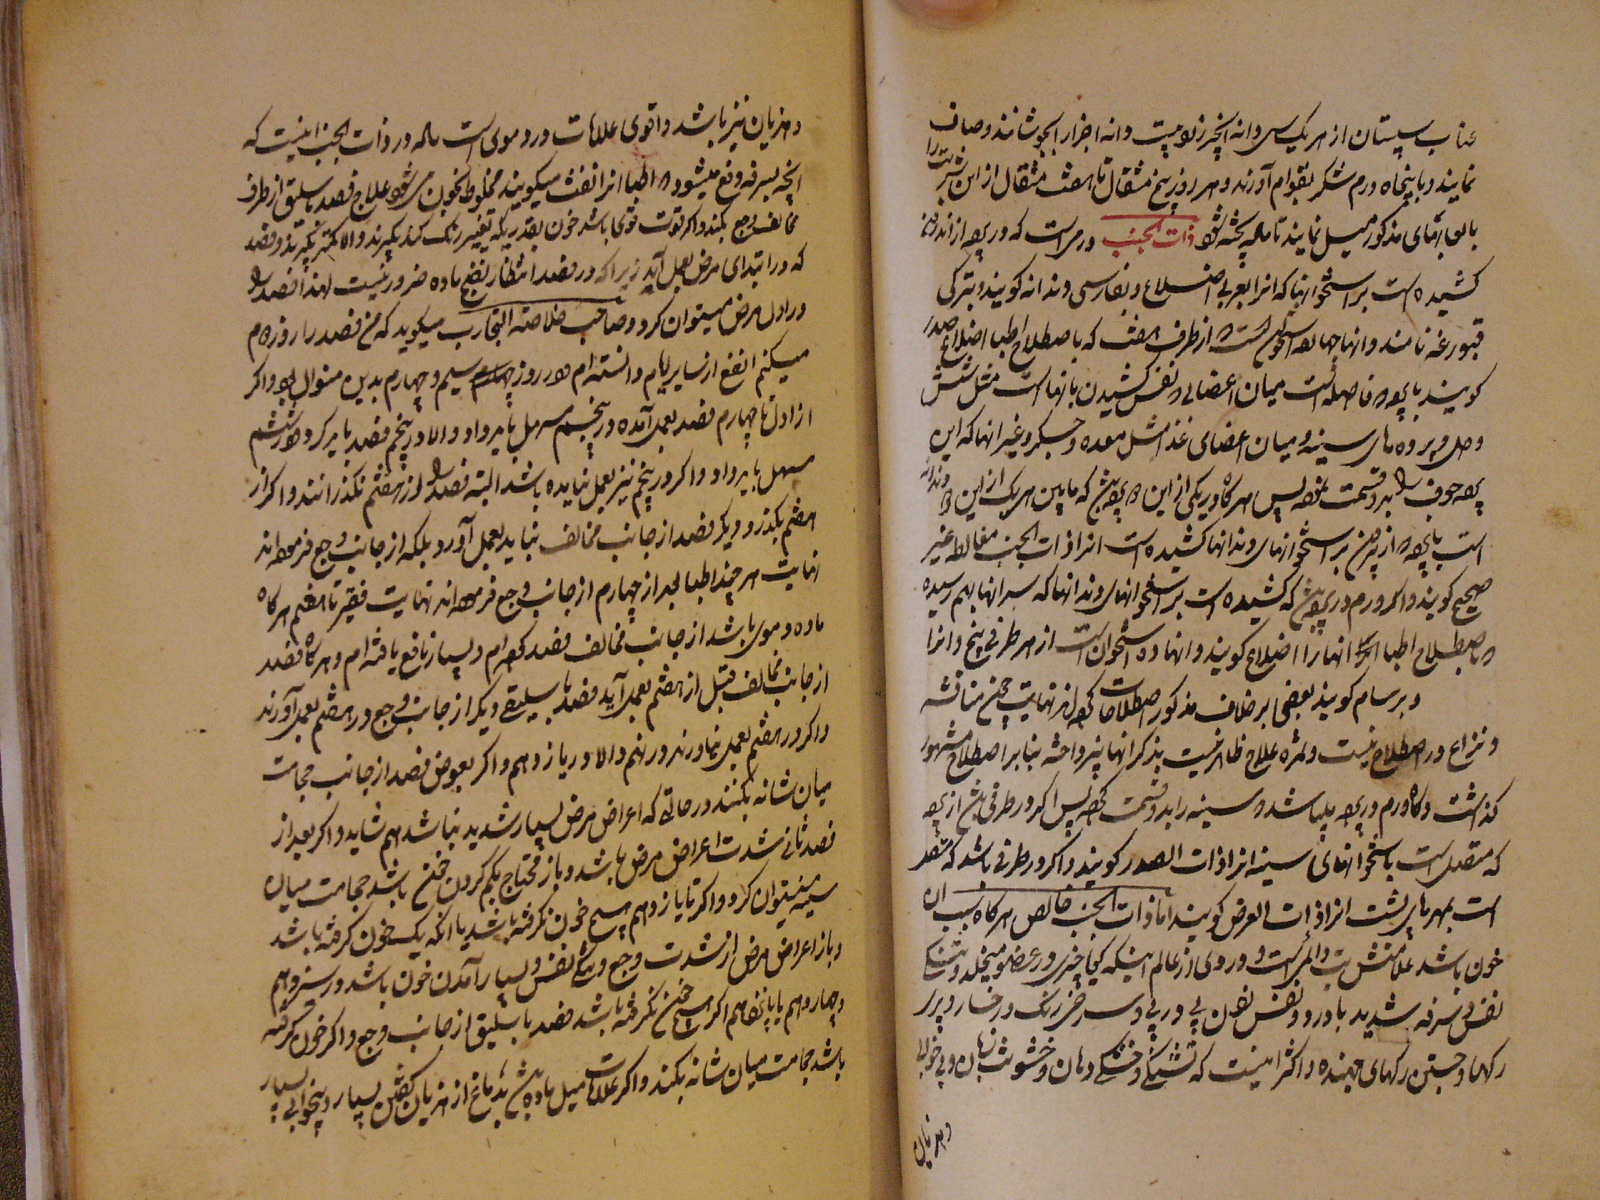 عناب سپستان از هر یک سی دانه انجیر زرد بیست دانه اجزا را بجوشانند و صاف
نمایند و با پنجاه درم شکر بقوام آورند و هر روز پنج مثقال تا هفت مثقال از این شربت را
بالعابهای مذکور میل نمایند تا ماده پخته شود ذات الجنب ورمی است که در پرده از اندرون
کشیده است بر استخوانها که انرا بعربی اضلاع و بفارسی دندانه کویند و بترکی
قبورغه نامند و انها چهارده استخوان است از طرف هفت که باصطلاح اطبا اضلاع صدر
کویند یا پرده فاصله است میان اعضای نفس کشیدن بانها است مثل شش
و دل و پرده های سینه و میان اعضای غذا مثل معده و جکر و غیر انها که این
پرده جوف را بدو قسمت نموده پس هرکاه در یکی از این دو پرده بهش که مابین هر یک از این دندانه
است یا پرده از بیرون بر استخوانهای دندانها کشیده است انرا ذات الجنب مغالطه غیر
صحیح کویند و اکر ورم در پرده بهش که کشیده است بر استخوانهای دندانها که سر انها بهم رسیده
باصطلاح اطبا انها را اضلاع کویند و انها ده استخوان است از هر طرفی پنج و انرا
و برسام کویند بعضی بر خلاف مذکور اصطلاحات کرده اند نهایت چون مناقشه
و نزاع در اصطلاح نیست و ثمره علاج ظاهر نیست بذکر انها نپرداخته بنا بر اصطلاح مشهور
کذاشت و کاه ورم در پرده پیدا شد و سینه را بدو قسمت کرده پس اکر در طرفی بهش از پرده
که متصل است باستخوانهای سینه انرا ذات الصدر کویند و اکر در طرفی باشد که متصل
است بمهره پشت انرا ذات العرض کویند اما ذات الجنب خالص هرکاه بسبب ان
خون باشد علامتش تب دائمی است و دردی از عالم اینکه کیی چیزی در عضو میخلد و تنکی
نفس و سرفه شدید با درد و نفس زدن پی در پی و سرخی رنک رخسار و پری
رکها و جستن رکهای جهنده و اکثر اینست که تشنکی و خشکی دهان و خشونت زبان و بی خوابی
و هذیان
و هذیان نیز باشد و اقوی علامات درد موی است ماده در ذات الجنب اینست که
انچه بسرفه دفع میشود و اطبا انرا نفث میکویند مخلوط بخون می شود علاج فصد باسلیق از طرف
مخالف وجع بکنند و اکر قوت قوی باشد خون بقدریکه تغییر رنک کند بکیرند والا کمتر بکیرند و فصد
که در ابتدای مرض بعمل آید زیرا که در فصد انتظار نضج ماده ضرور نیست لهذا فصد را
در اول مرض میتوان کرد و صاحب خلاصة التجارب میکوید که من فصد را روز دوم
میکنم انفع از سایر ایام دانسته ام و در روز سیم و چهارم بدین منوال بود و اکر
از اول تا چهارم فصد بعمل آمده در پنجم مسهل باید داد والا در پنجم فصد باید کرد و در ششم
مسهل باید داد و اکر در پنجم نیز بعمل نیامده باشد البته فصد را از هفتم نکذرانند و اکر از
هفتم بکذرد دیکر فصد از جانب مخالف نباید بعمل آورد بلکه از جانب وجع فرموده اند
نهایت هر چند اطبا بعد از چهارم از جانب وجع فرموده اند نهایت فقیر تا هفتم هرکاه
ماده دموی باشد از جانب مخالف فصد کرده ام و بسیار نافع یافته ام و هرکاه فصد
از جانب مخالف قبل از هفتم بعمل آید فصد باسلیق دیکر از جانب وجع در هفتم بعمل آورند
و اکر در هفتم بعمل نیاورند در نهم والا در یازدهم و اکر بعوض فصد از جانب حجامت
میان شانه بکنند در حالتی که اعراض مرض بسیار شدید نباشد هم شاید و اکر بعد از
فصد ثانی شدت اعراض مرض باشد و باز محتاج بکم کردن خون باشد حجامت میان
سینه میتوان کرد و اکر تا یازدهم هیچ خون نکرفته باشد یا انکه یک خون کرفته باشد
و باز اعراض مرض از شدت وجع و تنکی نفس و بسیار آمدن خون باشد در سیزدهم
و چهاردهم یا پانزدهم اکر هیچ خون نکرفته باشد فصد باسلیق از جانب وجع و اکر خون کرفته
باشد حجامت میان شانه بکنند و اکر علامات میل ماده بهش بدماغ از هذیان کفتن بسیار و بیخوابی بسیار